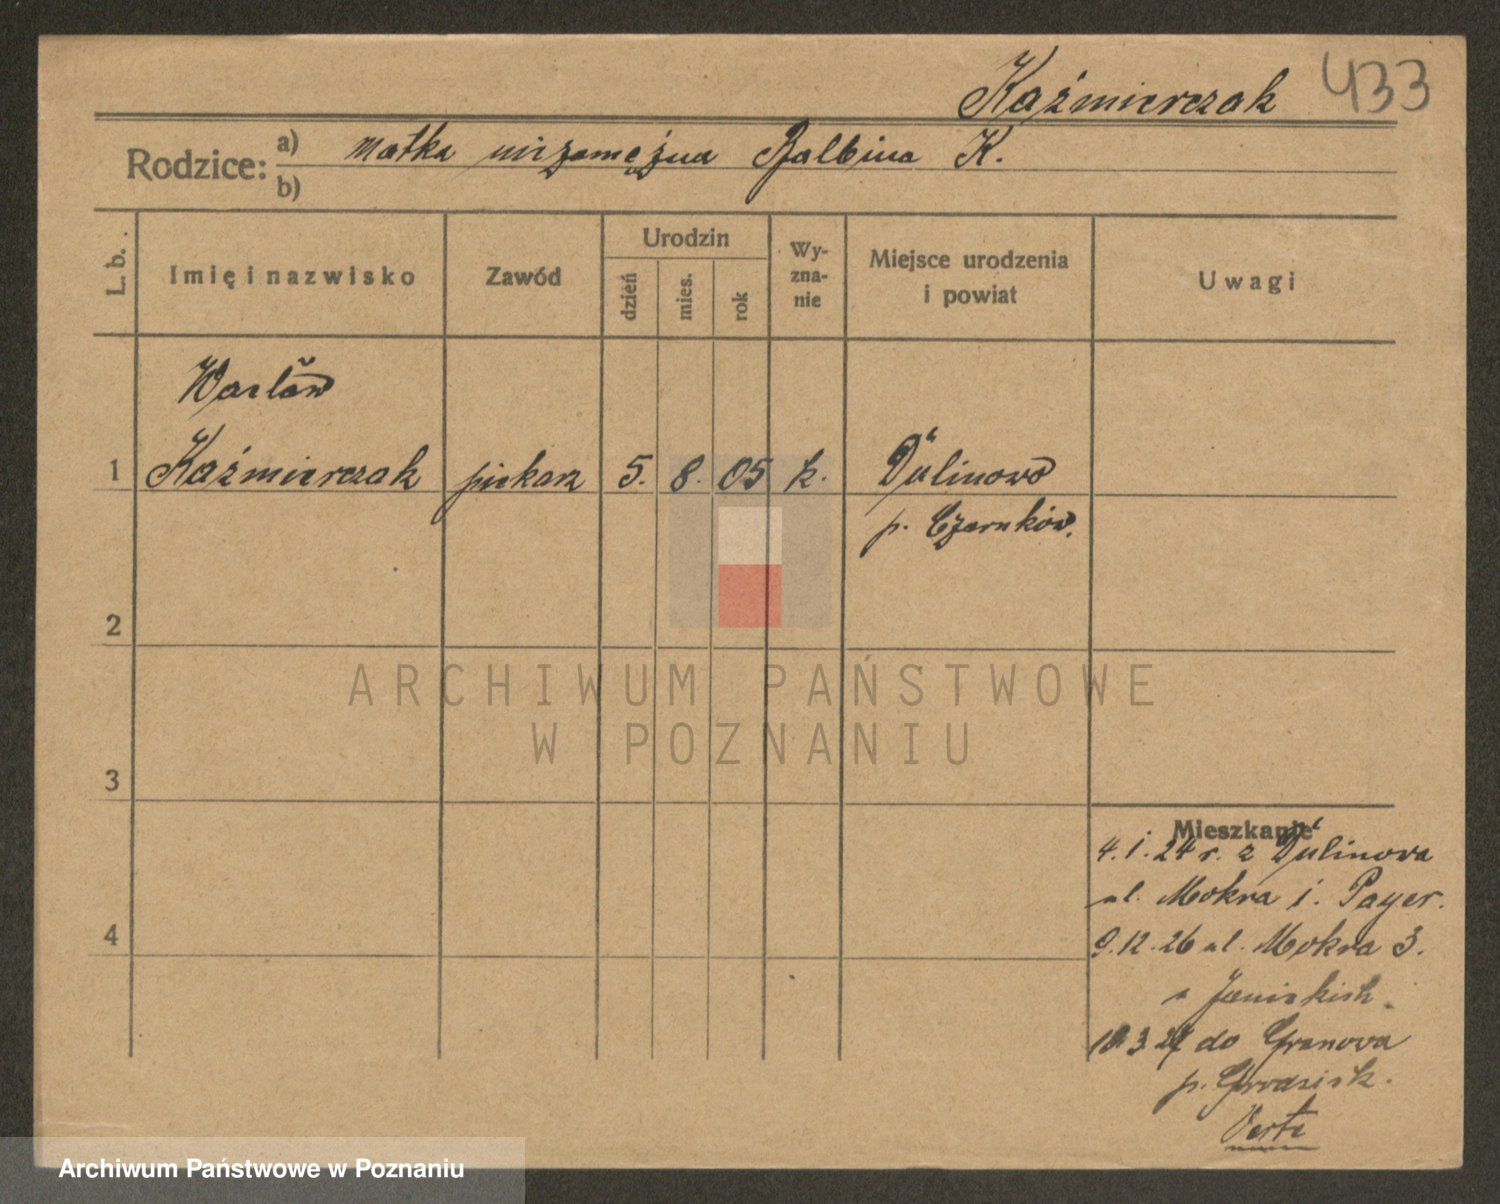 Kaźmierczak 433
Rodzice: a) matka niezamężna Balbina K.
b)
L. b.
Imię i nazwisko
Zawód
Urodzin
dzień
mies.
rok
Wy-
zna-
nie
Miejsce urodzenia
i powiat
Uwagi
Wacław
1 Kaźmierczak piekarz 5. 8. 05 k. Dulinowo
p. Czarnków.
2
ARCHIWUM PAŃSTWOWE
W POZNANIU
3
Mieszkanie
4.1.24 r. z Dulinowa
ul. Mokra i. Payer.
4
9.12.26 ul. Mokra 3.
Janickich.
3.27 do Granowa
p. Grodzisk.
Verte
Archiwum Państwowe w Poznaniu